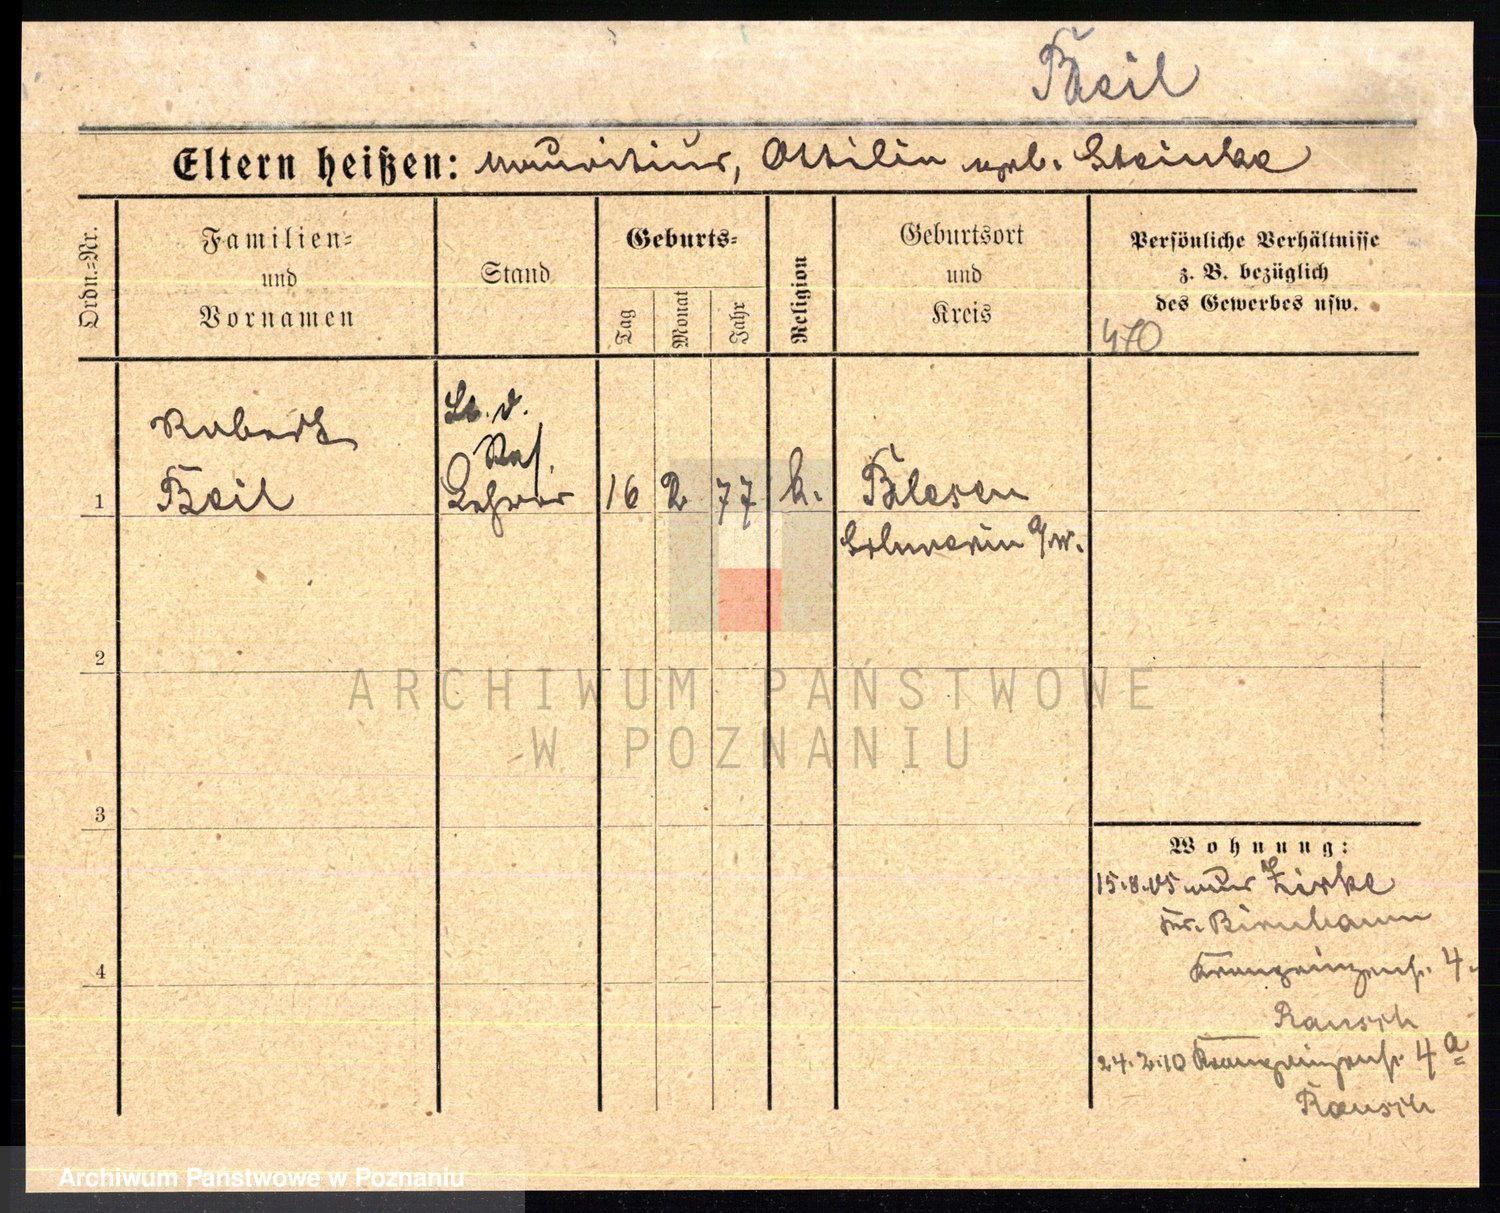 Beil
Eltern heißen: Mauritius, Ottilie geb. Steinke
Ordn.-Nr.
Familien-
und
Vornamen
Stand
Geburts-
Tag
Monat
Jahr
Religion
Geburtsort
und
Kreis
Persönliche Verhältnisse
z. B. bezüglich
des Gewerbes usw.
470
Robert
Lt. d.
Res.
1 Beil Lehrer 16 2 77 k. Blesen
Schwerin a/W.
2
3
4
Wohnung:
15.8.05 aus Zirke
Kr. Birnbaum
Kronprinzenstr. 4.
Rausch
24.2.10 Kronprinzenstr. 4a
Rausch
ARCHIWUM PAŃSTWOWE
W POZNANIU
Archiwum Państwowe w Poznaniu